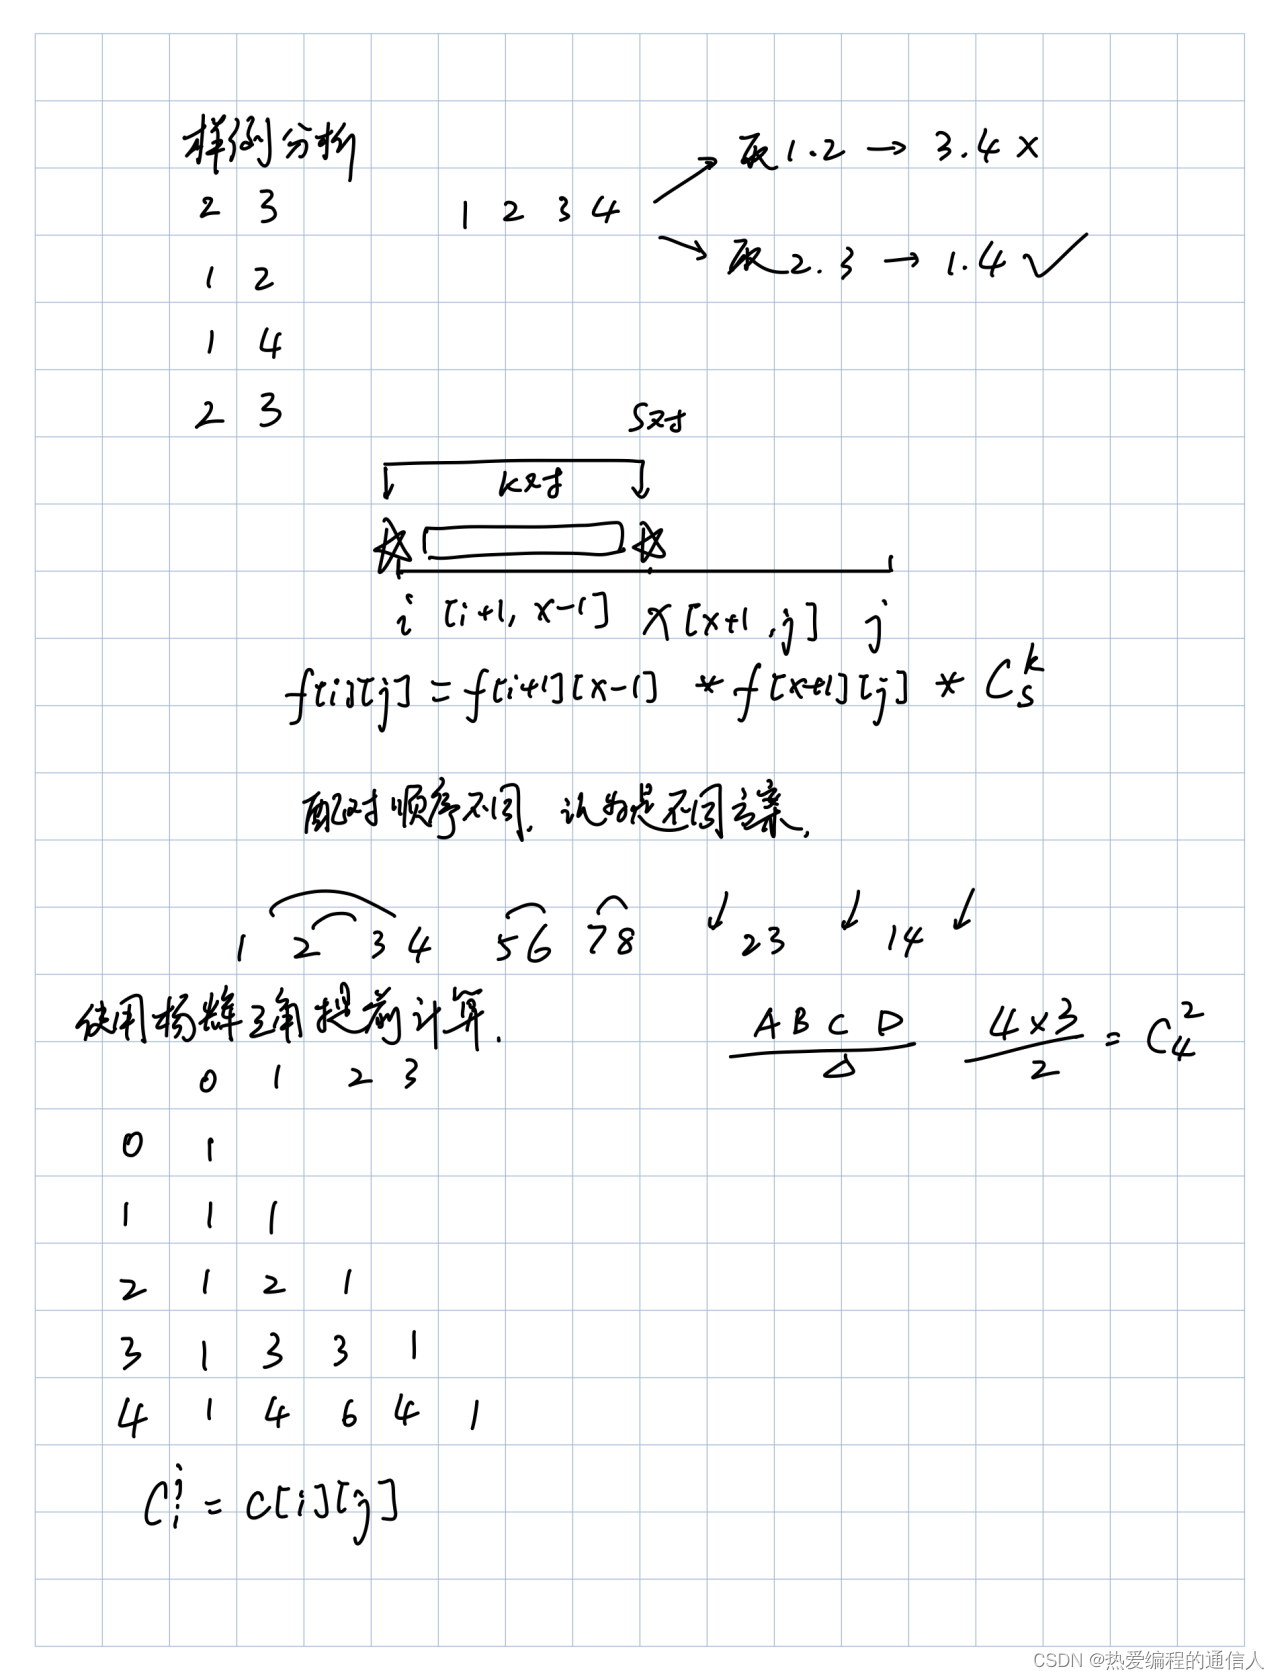 样例分析
2 3
1 2
1 4
2 3
1 2 3 4
取1.2 → 3.4 ×
取2.3 → 1.4 ✓
S对
k对
i [i+1, x-1] x [x+1, j] j
f[i][j] = f[i+1][x-1] * f[x+1][j] * C_s^k
配对顺序不同, 认为是不同方案.
1 2 3 4 56 78 ↓ 23 ↓ 14 ↓
使用杨辉三角提前计算.
A B C D
Δ
4×3 / 2 = C_4^2
0 1 2 3
0 1
1 1 1
2 1 2 1
3 1 3 3 1
4 1 4 6 4 1
C_i^j = C[i][j]
CSDN @热爱编程的通信人